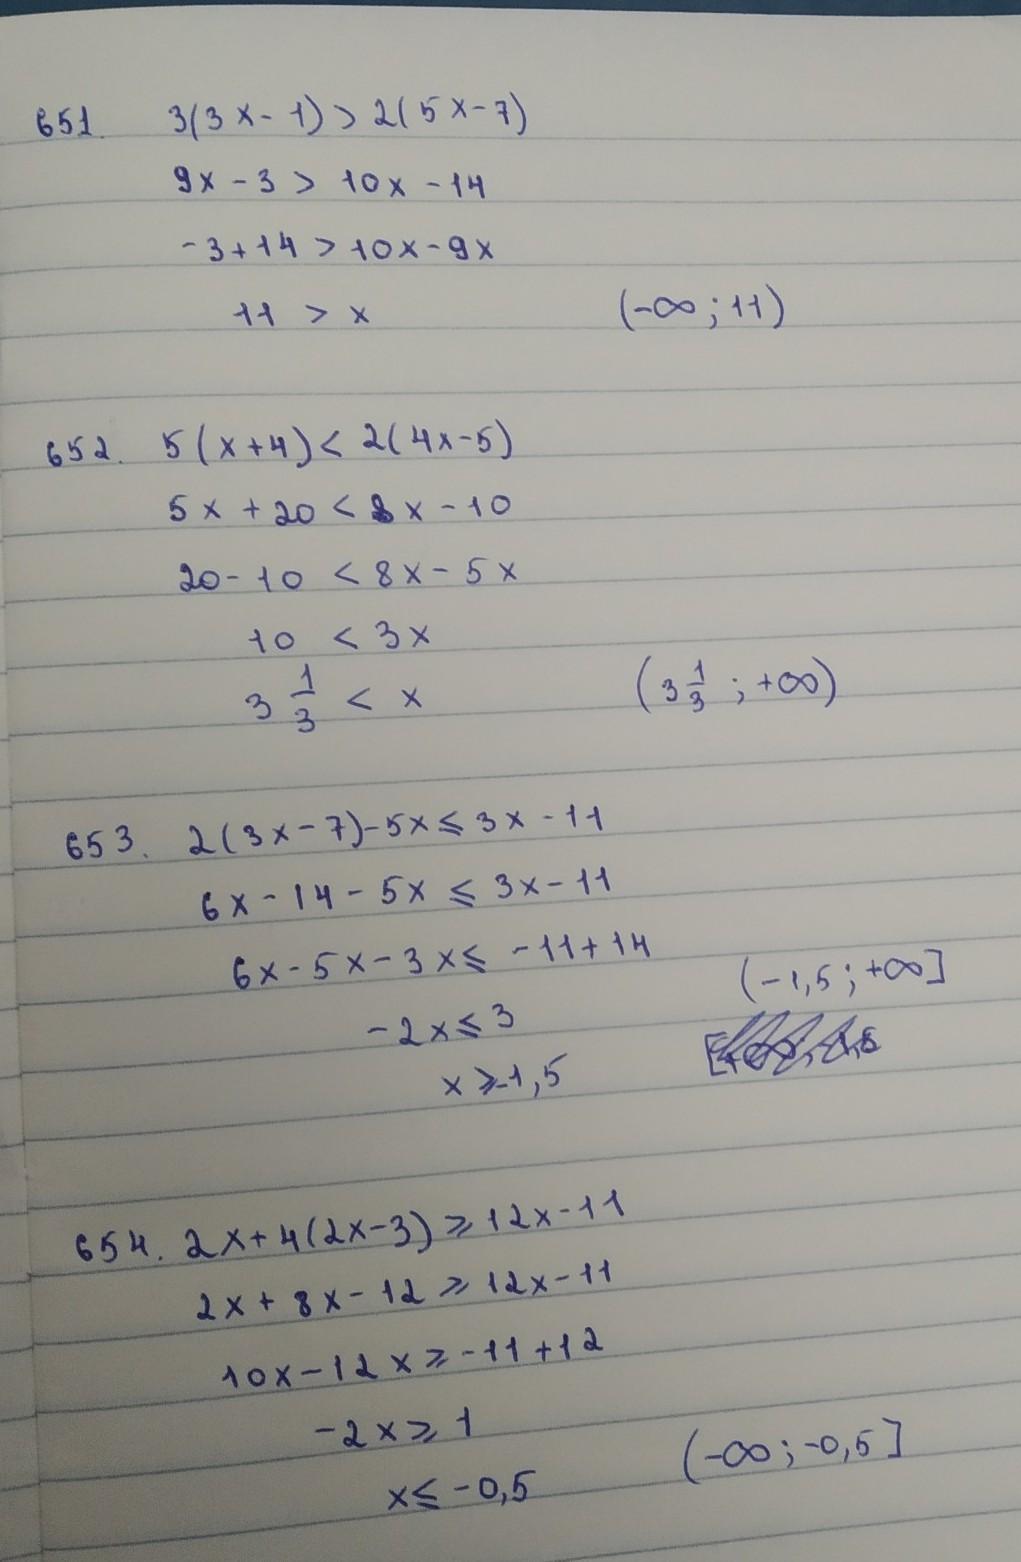 651. 3(3x-1)>2(5x-7)
9x-3>10x-14
-3+14>10x-9x
11>x (-∞;11)
652. 5(x+4)<2(4x-5)
5x+20<8x-10
20-10<8x-5x
10<3x
3 1/3 < x (3 1/3 ;+∞)
653. 2(3x-7)-5x≤3x-11
6x-14-5x≤3x-11
6x-5x-3x≤-11+14
(-1,5;+∞]
-2x≤3
x≥-1,5
654. 2x+4(2x-3)≥12x-11
2x+8x-12≥12x-11
10x-12x≥-11+12
-2x≥1
x≤-0,5 (-∞;-0,5]